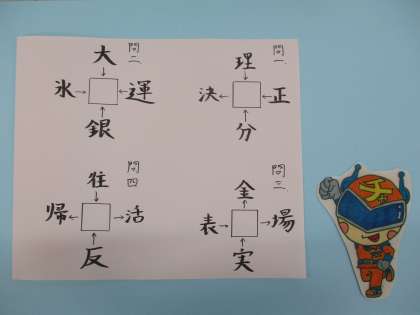 問一
理
↓
決←□←正
↑
分
問二
大
↓
氷→□←運
↑
銀
問三
金
↑
表→□→場
↑
実
問四
往
↓
帰←□→活
↑
反
チ